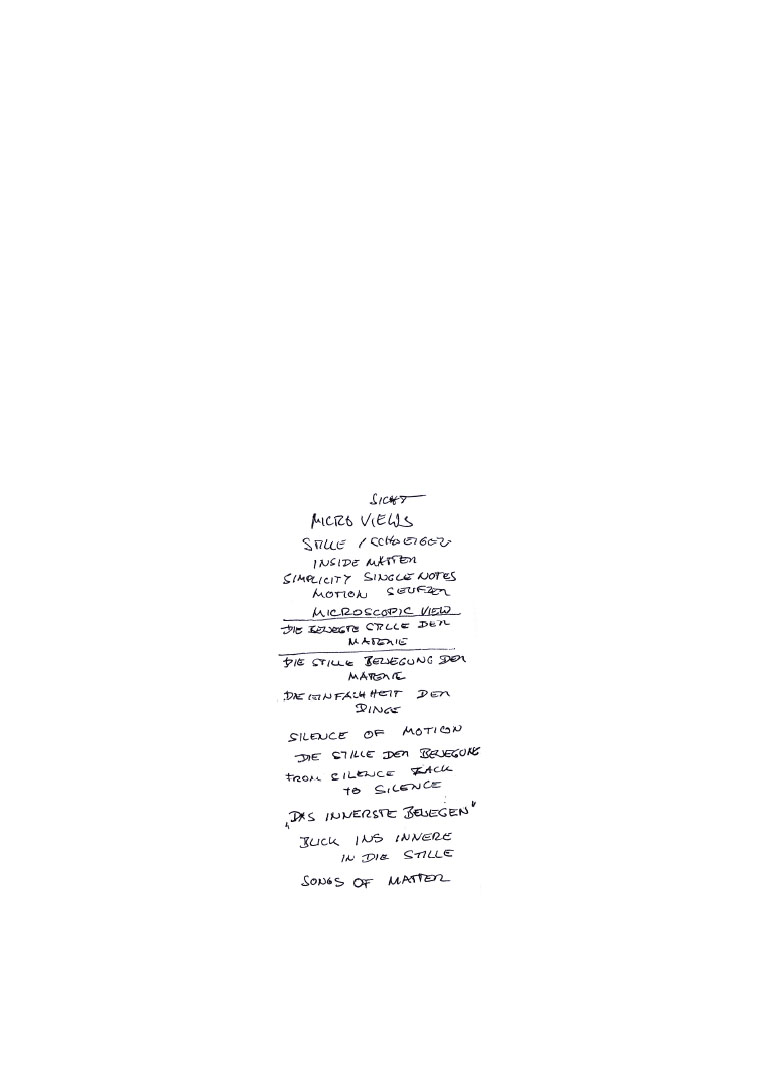 SICHT
MICRO VIEWS
STILLE / SCHWEIGEN
INSIDE MATTER
SIMPLICITY SINGLE NOTES
MOTION SEUFZER
MICROSCOPIC VIEW
DIE BEWEGTE STILLE DER
MATERIE
DIE STILLE BEWEGUNG DER
MATERIE
DIE EINFACHHEIT DER
DINGE
SILENCE OF MOTION
DIE STILLE DER BEWEGUNG
FROM SILENCE BACK
TO SILENCE
„DAS INNERSTE BEWEGEN"
BLICK INS INNERE
IN DIE STILLE
SONGS OF MATTER